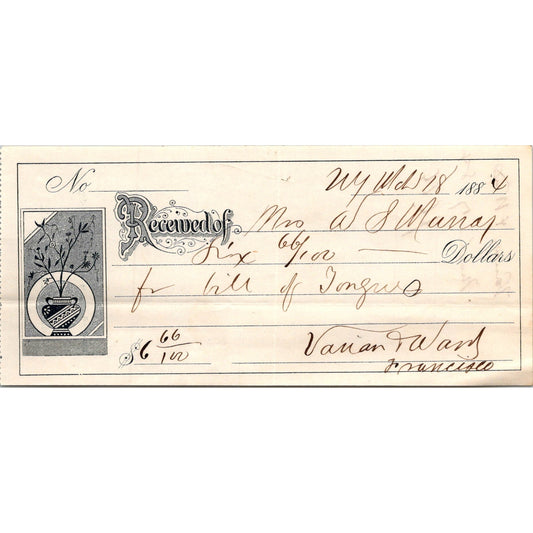 No
NY Mch 18 1884
Received of Mrs A S Murray
Six 66/100 Dollars
for bill of Tongues
$6 66/100
Varian & Ward
Francisco